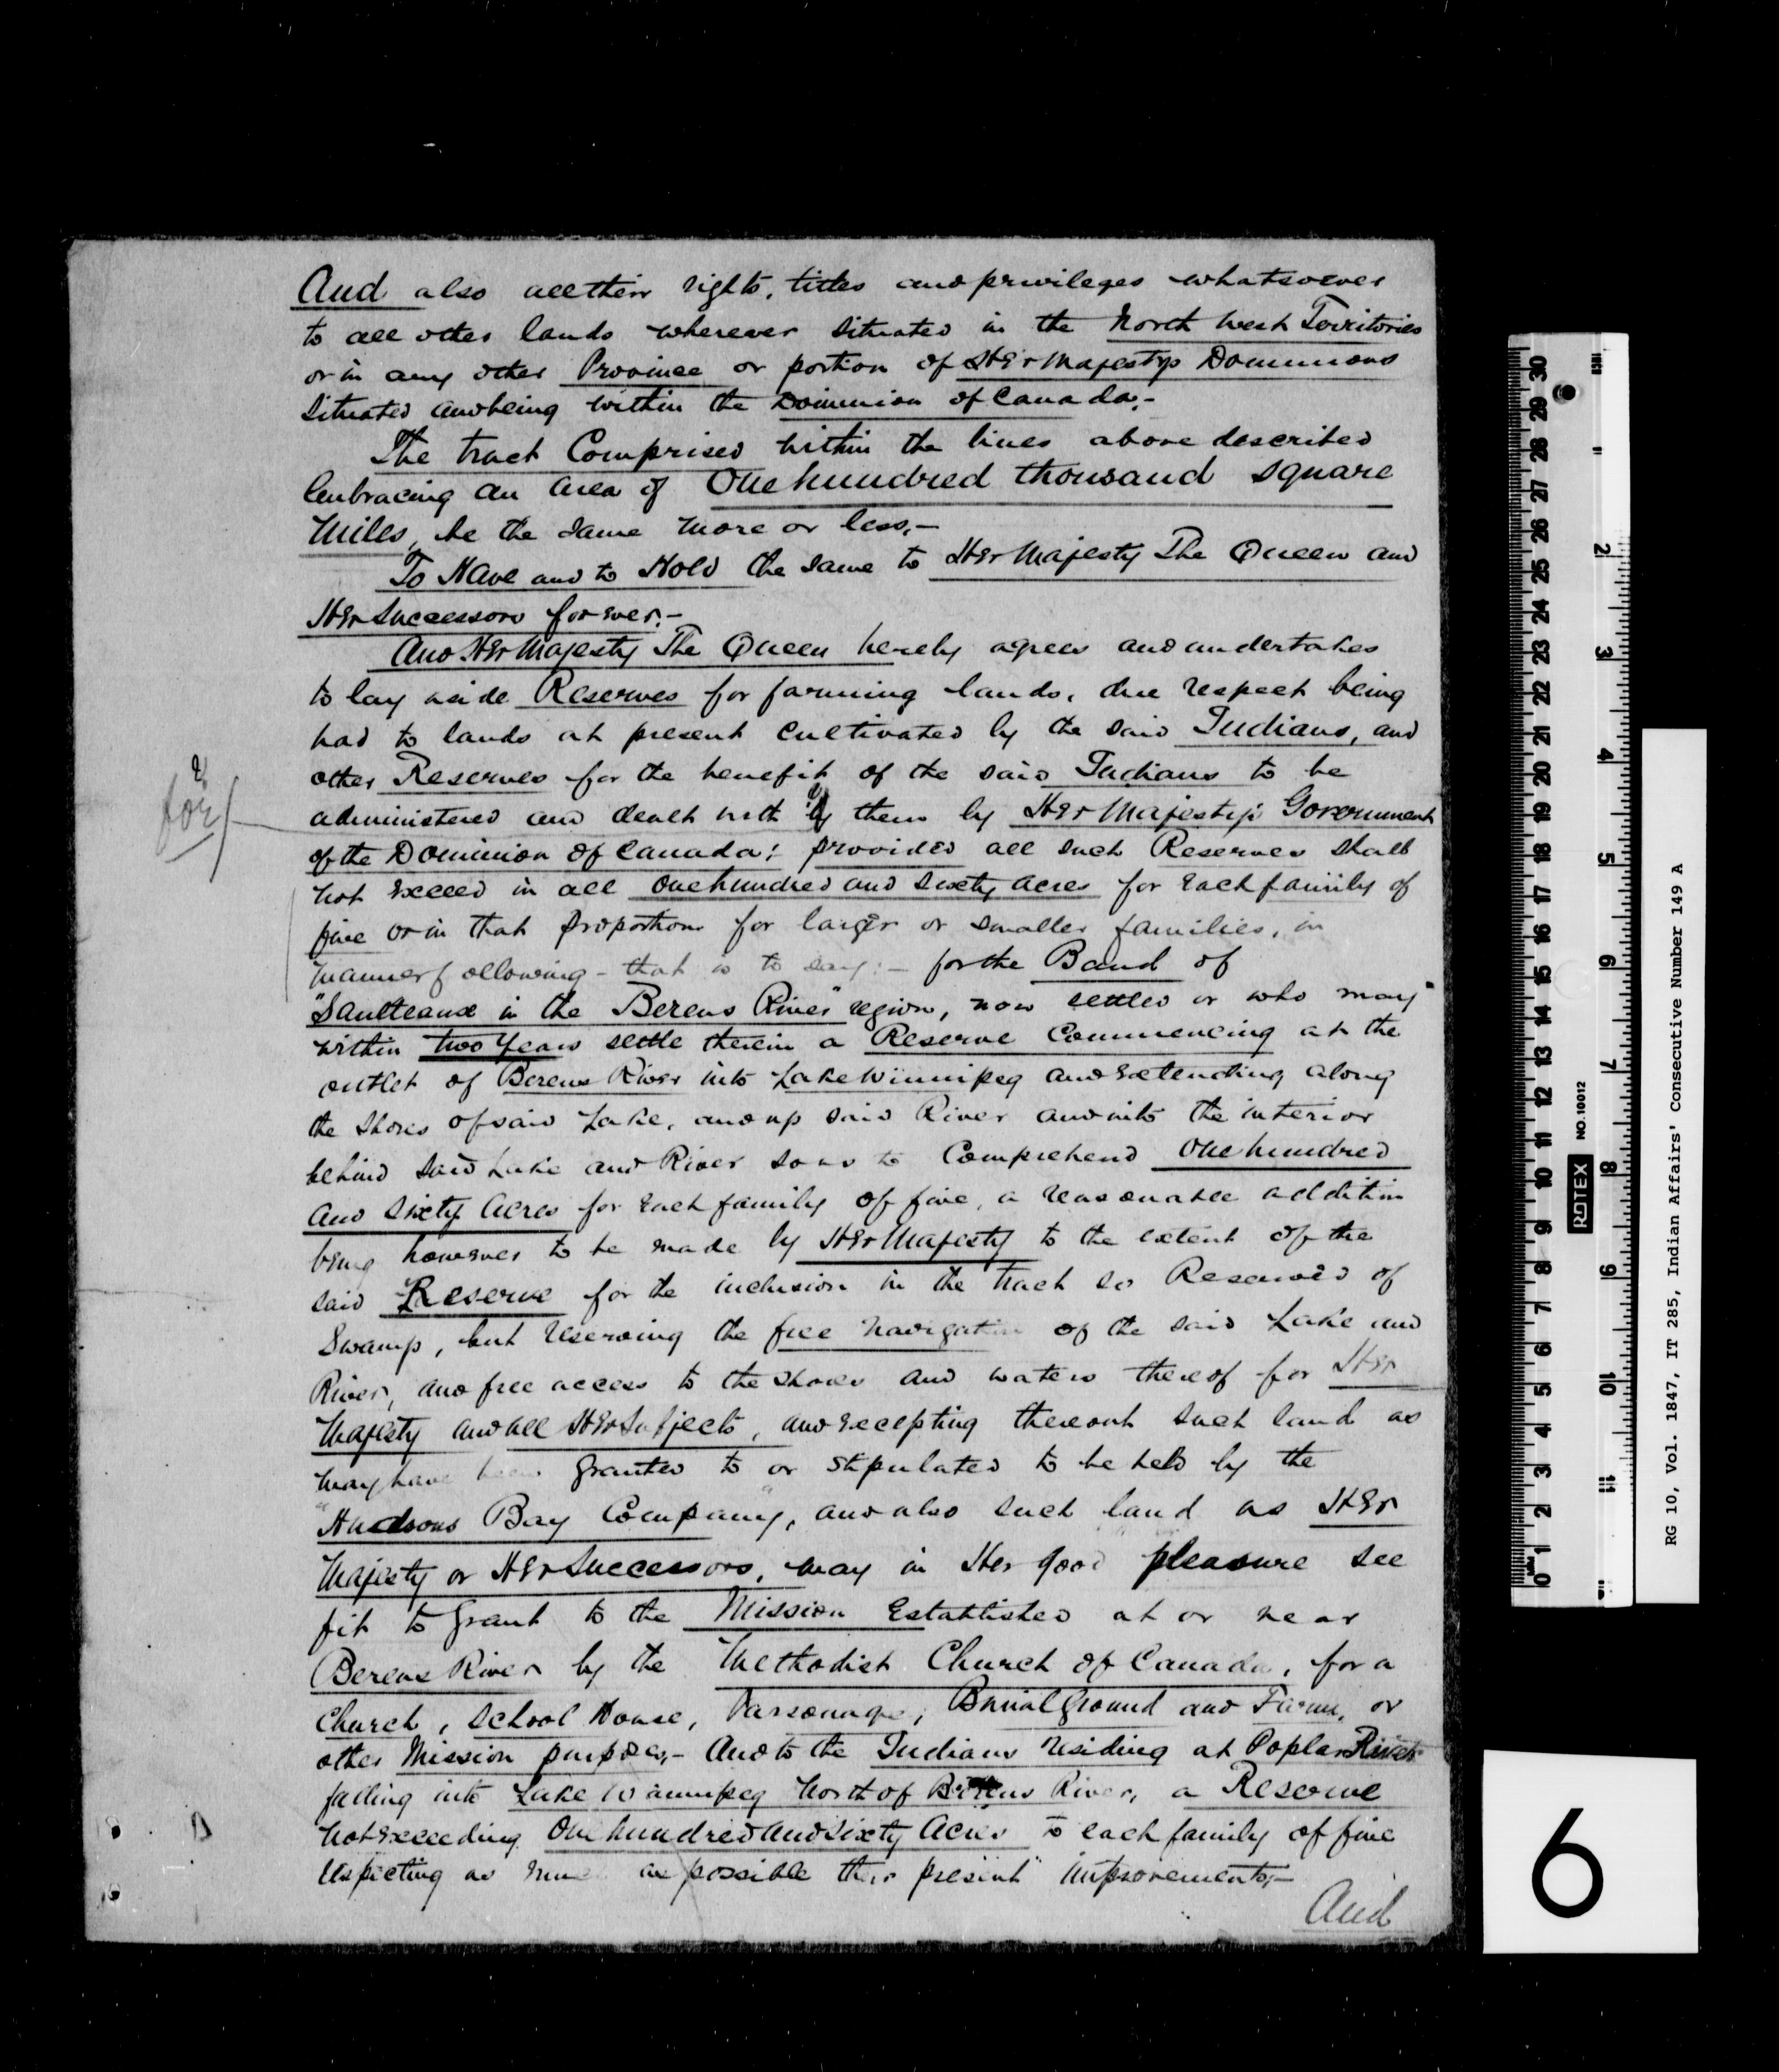 And also all their rights, titles and privileges whatsoever
to all other lands wherever situated in the North West Territories
or in any other Province or portion of Her Majesty's Dominions
situated and being within the Dominion of Canada;-
The tract Comprised within the lines above described
embracing an area of One hundred thousand square
Miles, be the same more or less,-
To Have and to Hold the same to Her Majesty The Queen and
Her Successors forever.-
And Her Majesty The Queen hereby agrees and undertakes
to lay aside Reserves for farming lands, due respect being
had to lands at present cultivated by the said Indians, and
other Reserves for the benefit of the said Indians to be
for/
administered and dealt with by them by Her Majesty's Government
of the Dominion of Canada; provided all such Reserves shall
not exceed in all One hundred and Sixty Acres for each family of
five or in that proportion for larger or smaller families, in
manner following - that is to say:- for the Band of
"Saulteaux in the Berens River" region, now settled or who may
within two Years settle therein a Reserve Commencing at the
outlet of Berens River into Lake Winnipeg and extending along
the Shores of said Lake, and up said River and into the interior
behind said Lake and River so as to Comprehend One hundred
and Sixty Acres for each family of five, a reasonable addition
being however to be made by Her Majesty to the extent of the
said Reserve for the inclusion in the tract so Reserved of
Swamp, but reserving the free navigation of the said Lake and
River, and free access to the shores and waters thereof for Her
Majesty and all Her Subjects, and excepting thereout such land as
may have been granted to or stipulated to be held by the
"Hudsons Bay Company", and also such land as Her
Majesty or Her Successors, may in Her good pleasure see
fit to grant to the Mission Established at or near
Berens River by the Methodist Church of Canada, for a
Church, School House, Parsonage, Burial Ground and Farm, or
other Mission purposes,- And to the Indians residing at Poplar River
falling into Lake Winnipeg North of Berens River, a Reserve
not exceeding One hundred and Sixty Acres to each family of five
respecting as much as possible their present improvements;-
And
6
RG 10, Vol. 1847, IT 285, Indian Affairs' Consecutive Number 149 A
ROTEX NO. 10012
30 29 28 27 26 25 24 23 22 21 20 19 18 17 16 15 14 13 12 11 10 9 8 7 6 5 4 3 2 1 0
2 3 4 5 6 7 8 9 10 11